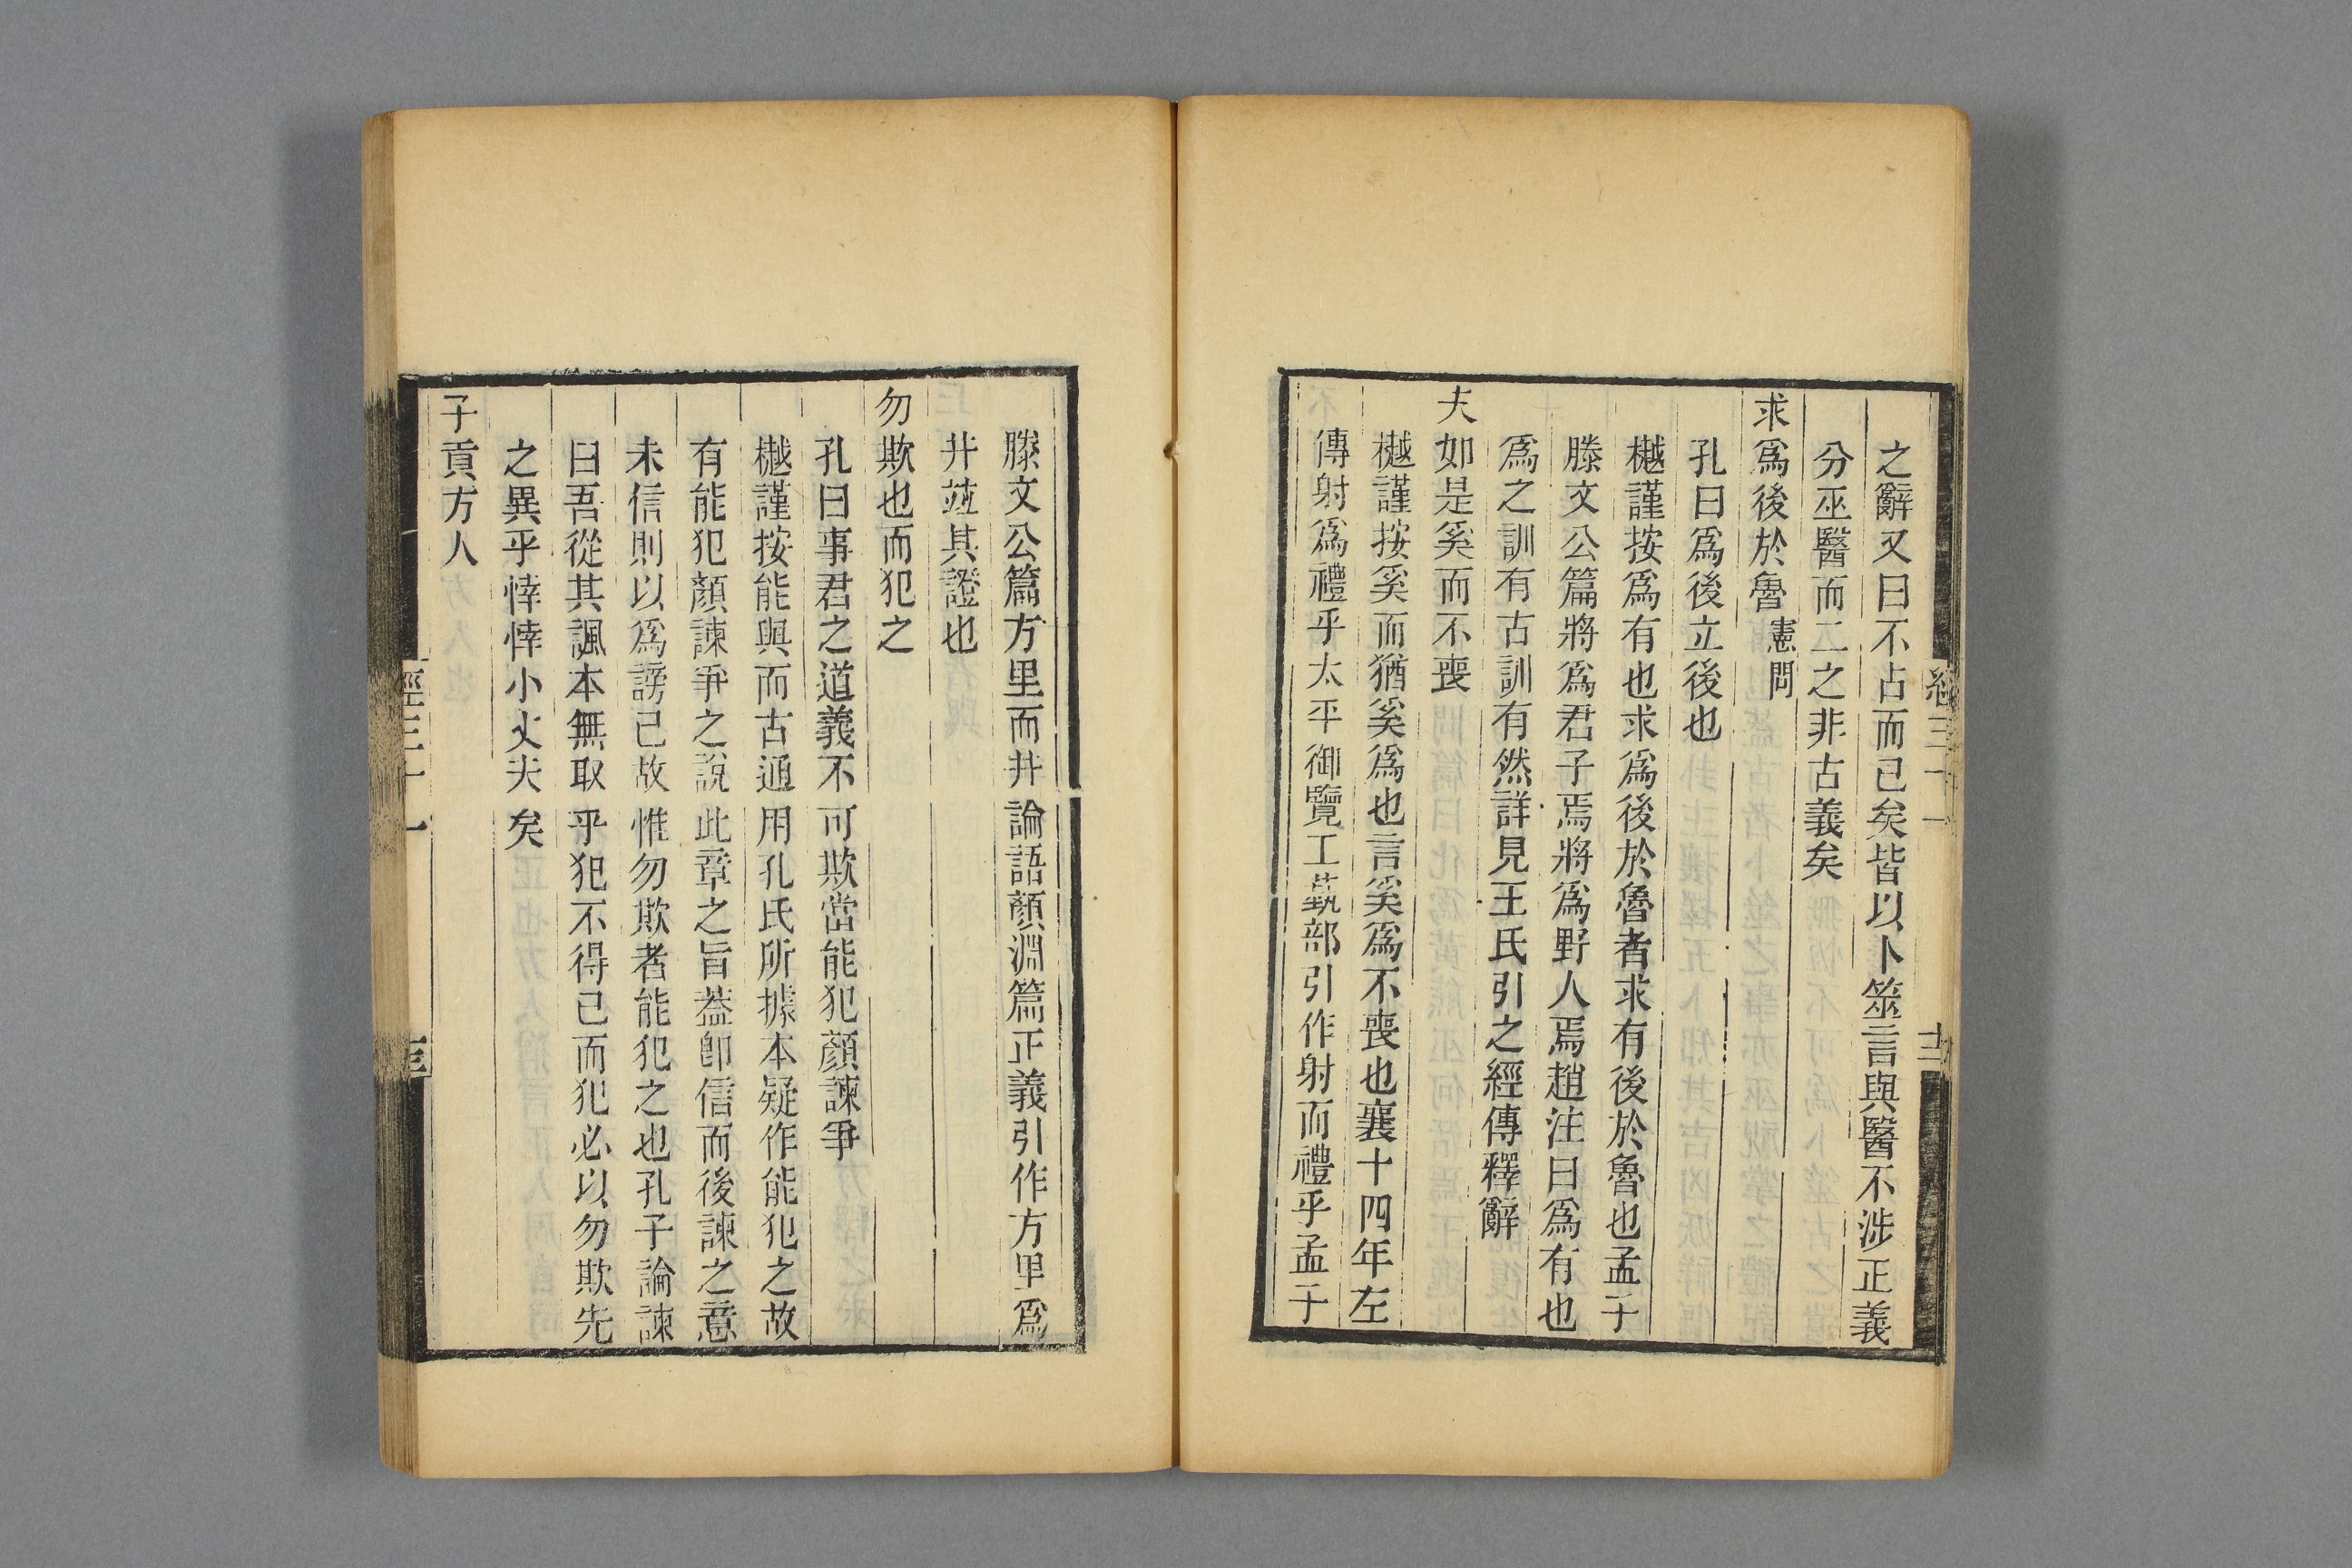 之辭又曰不占而已矣皆以卜筮言與醫不涉正義
分巫醫而二之非古義矣
求爲後於魯 憲問
孔曰爲後立後也
樾謹按爲有也求爲後於魯者求有後於魯也孟子
滕文公篇將爲君子焉將爲野人焉趙注曰爲有也
爲之訓有古訓有然詳見王氏引之經傳釋辭
夫如是奚而不喪
樾謹按奚而猶奚爲也言奚爲不喪也襄十四年左
傳射爲禮乎太平御覽工蓺部引作射而禮乎孟子
滕文公篇方里而井論語顏淵篇正義引作方里爲
井竝其證也
勿欺也而犯之
孔曰事君之道義不可欺當能犯顏諫爭
樾謹按能與而古通用孔氏所據本疑作能犯之故
有能犯顏諫爭之說此章之旨葢卽信而後諫之意
未信則以爲謗己故惟勿欺者能犯之也孔子論諫
曰吾從其諷本無取乎犯不得已而犯必以勿欺先
之異乎悻悻小丈夫矣
子貢方人